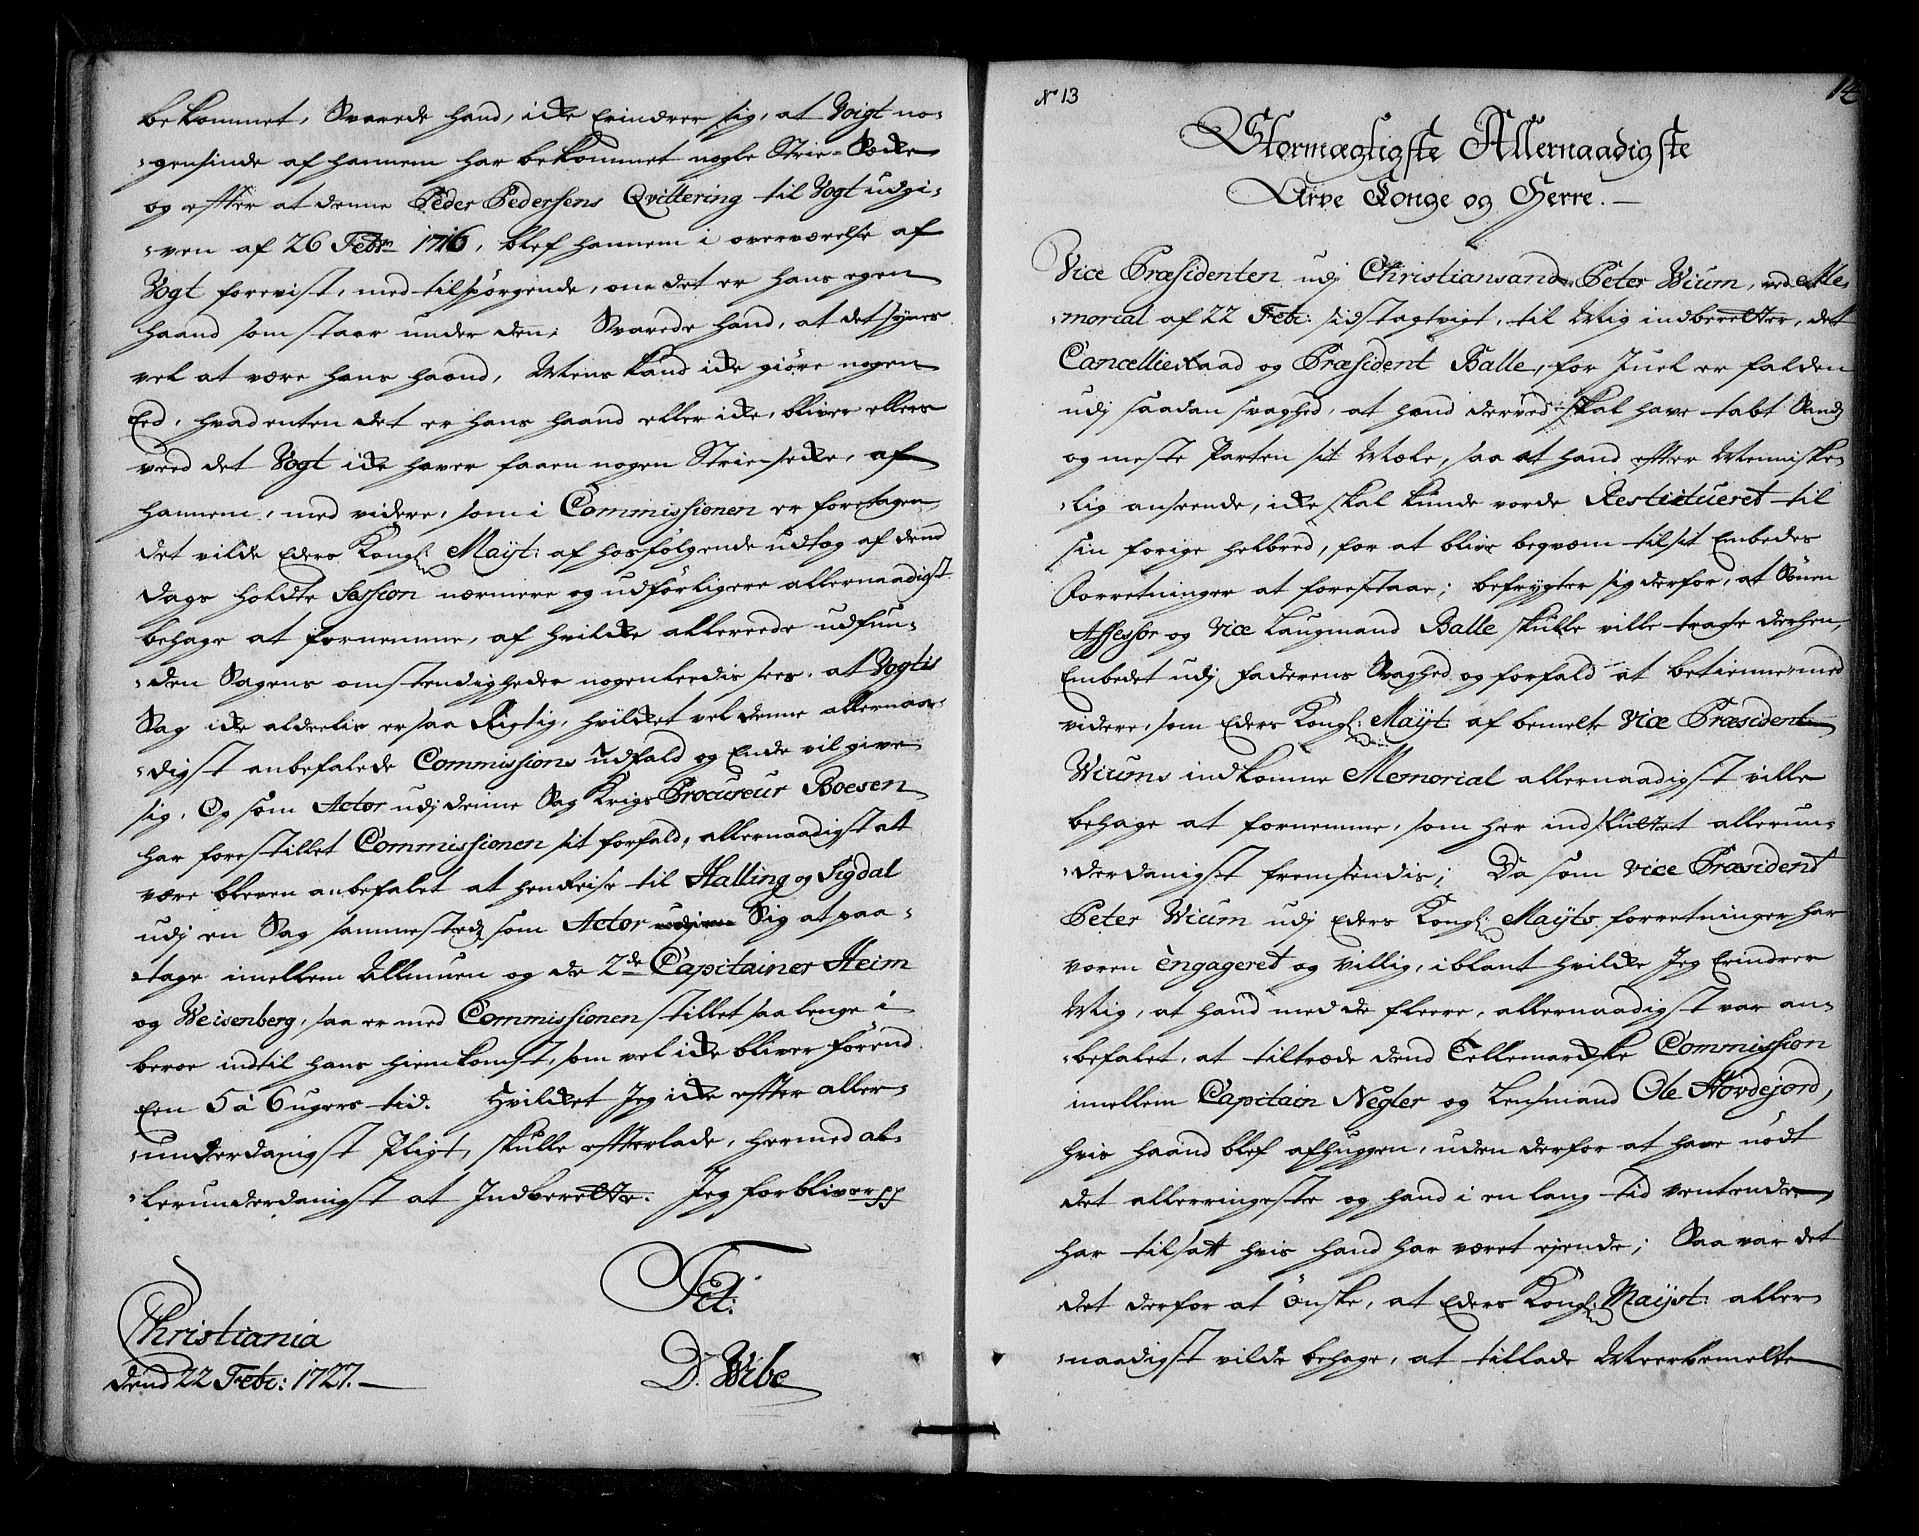 bekommet, Svarede hand, icke Erindrer sig, at Voigt no-
-gensinde af hannem har bekommet nogle Strie-Sæcke
og efter at denne Peder Pedersens Qvittering til Vogt udgi-
-ven af 26 Febr 1716, blef hannem i overværelse af
Vogt forevist, med tilspørgende, om det er hans egen
haand som staar under den; Svarede hand, at det synes
vel at være hans haand, Mens kand icke giöre nogen
Eed, hvad enten det er hans haand eller icke, bliver ellers
veed det Vogt icke haver faaen nogen Strie-secke, af
hannem, med videre, som i Commissionen er foretagen,
det vilde Eders Kongl: Mayt: af hosfølgende udtog af dend
dags holdte Session nærmere og udförligere allernaadigst
behage at fornemme, af hvilcke allereede udfun-
-den Sagens omstendigheder nogenleedis sees, at Vogtis
Sag icke alderlis er saa Rigtig, hvilcket vel denne allernaa-
-digst anbefalede Commissions Udfald og Ende vil give
sig. Og som Actor udj denne Sag Krigs Procureur Boesen
har forestillet Commissionen sit forfald, allernaadigst att
være bleven anbefalet at henReise til Halling og Sigdal
udj en Sag sammesteds som Actor Sig at paa-
-tage imellem Allmuen og de 2de Capitainer Heim
og Weisenberg, saa er med Commissionen stillet saa lenge i
beroe indtil hans hiemkomst, som vel icke bliver förend
Een 5 à 6 ugers tid. Hvilcket Jeg icke efter aller-
-underdanigst Pligt, skulle efterlade, hermed al-
-lerunderdanigst at Indberette. Jeg forbliver pp
Tit:
Christiania
dend 22 Febr: 1727.
D. Wibe
N 13
14
Stormægtigste Allernaadigste
Arve Konge og Herre.
Vice Præsidenten udj Christiansand Peter Wium, ved Me-
-morial af 22 Febr: sidstagtvigt, til Mig indberetter, det
CancellieRaad og Præsident Balle, for Juel er falden
udj saadan svaghed, at hand derved skal have tabt Sands
og meste Parten sit Mæle, saa at hand efter Menniske-
-lig anseende, icke skal kunde vorde Restitueret til
sin forige helbred, for at blive begvem til sit Embedes
Forretninger at forestaae; befrygter sig derfor, at Sönen
Assessor og Vice Laugmand Balle skulle ville tragte derhen,
Embedet udj Faderens Svaghed og forfald at betienne med
videre, som Eders Kongl: Mayt: af bemelte Vice Præsident
Wiums indkomne Memorial allernaadigst ville
behage at fornemme, som her indsluttet allerun-
-derdanigst fremsendis; Da som Vice Præsident
Peter Wium udj Eders Kongl: Mayts. forretninger har
voren engageret og villig, iblant hvilcke Jeg Erindrer
Mig, at hand med de fleere, allernaadigst var an-
-befalet, at tiltræde dend Tellemarckske Commission
imellem Capitain Negler og Lensmand Ole Hovdejord,
hvis haand blef afhuggen, uden derfor at have nödt
det allerringeste og hand i en lang tid ventende
har tilsatt hvis hand har været ejende; Saa var det
det derfor at önske, at Eders Kongl: Mayst: aller-
-naadigst vilde behage, at tillade Meerbemelte